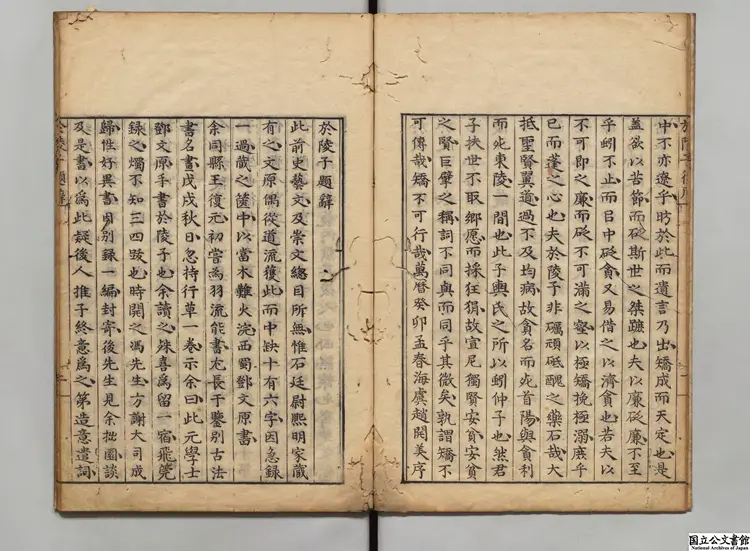 中不亦遼乎昉於此而遺言乃出矯成而天定也是
蓋欲以苦節而砭斯世之桀蹠也夫以廉砭廉不至
乎蚓不止而曰中砭貪又易借之以濟貪也若夫以
不可即之廉而砭不可滿之壑以極矯挽極溺庶乎
已而蓬之心也夫於陵子非礪頑砥醜之藥石哉大
抵聖賢翼道過不及均病故貪名而死首陽與貪利
而死東陵一間也此子輿氏之所以蚓仲子也然君
子扶世不取鄉愿而採狂狷故宣尼獨賢安貧安貧
之賢巨擘之稱詞不同與而同乎其微矣孰謂矯不
可傳哉矯不可行哉萬曆癸卯孟春海虞趙開美序
於陵子題辭
此前史藝文及崇文總目所無惟石廷尉熙明家藏
有之文原偶從道流獲此而中缺十有六字因急錄
一過藏之篋中以當木難火浣西蜀鄧文原書
余同縣王復元初嘗為羽流能書尤長于鑒別古法
書名畫戊戌秋日忽持行草一卷示余曰此元學士
鄧文原手書於陵子也余讀之殊喜為留一宿飛筦
錄之燭不知三四跋也時開之馮先生方謝大司成
歸性好異書因別錄一編封寄後先生見余拙園談
及是書以為此疑後人推子終意為之第造意遣詞
於陵子題辭
国立公文書館
National Archives of Japan